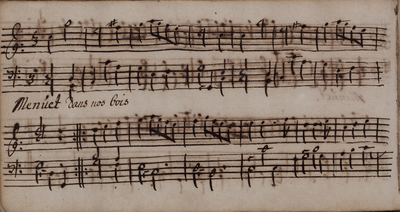 Menuet dans nos bois